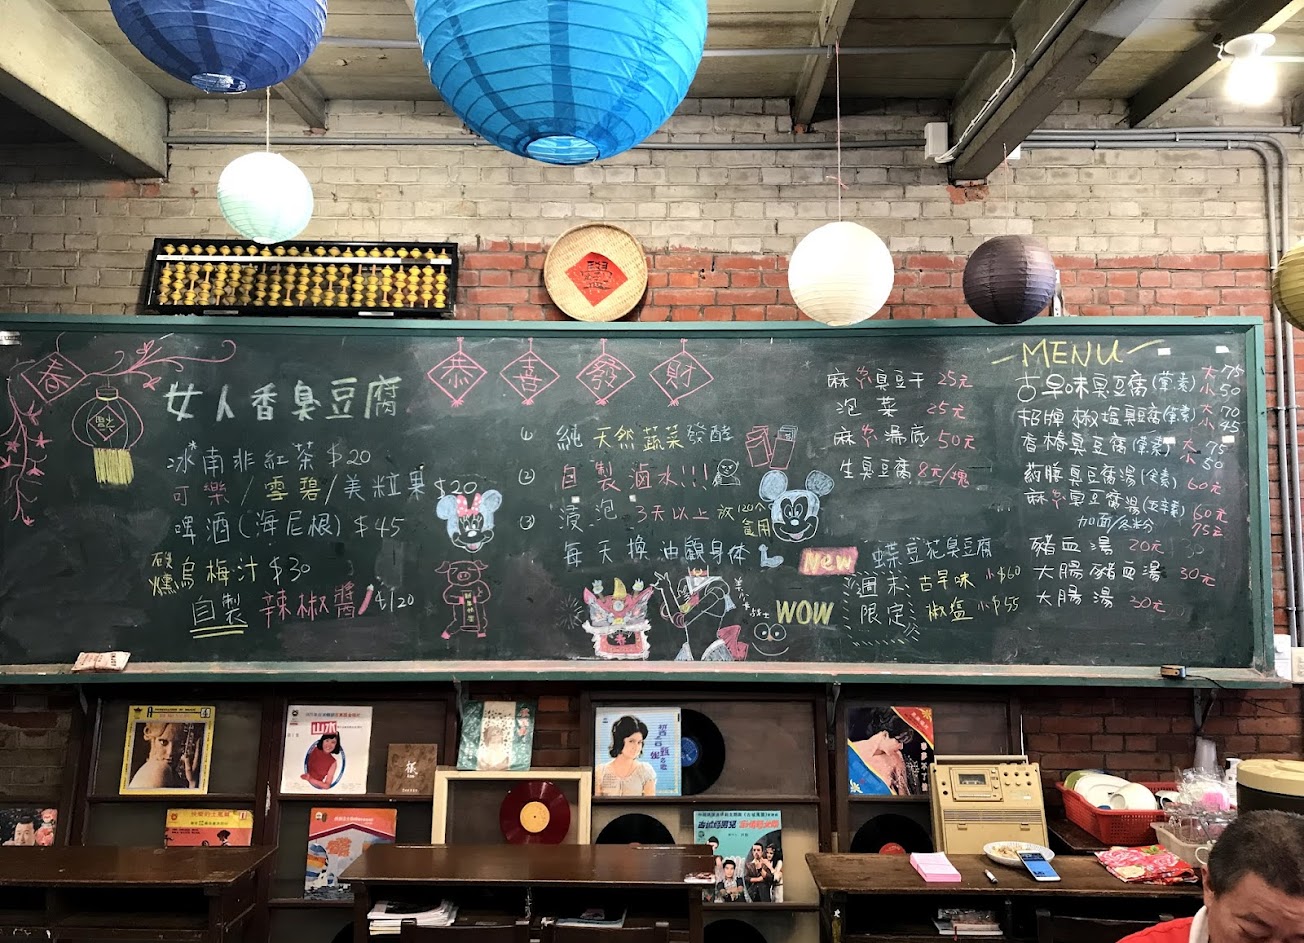 春
女人香臭豆腐
冰南非紅茶 $20
可樂/雪碧/美粒果 $20
啤酒(海尼根) $45
烏梅汁 $30
自製 辣椒醬
恭 喜 發 財
① 純天然蔬菜發酵
② 自製滷水!!!
③ 浸泡3天以上
每天換油顧身体
WOW
麻辣臭豆干 25元
泡菜 25元
麻辣湯底 50元
生臭豆腐 8元/塊
New 蝶豆花臭豆腐
週末限定
古早味 小$60
椒塩 小$55
MENU
古早味臭豆腐(葷素) 大75 小50
招牌椒塩臭豆腐(葷素) 大70 小45
香椿臭豆腐(葷素) 大75 小50
藥膳臭豆腐湯(全素) 60元
麻辣臭豆腐湯(五辛素) 60元
加面/冬粉 75元
豬血湯 20元 30
大腸豬血湯 30元
大腸湯 30元
山本